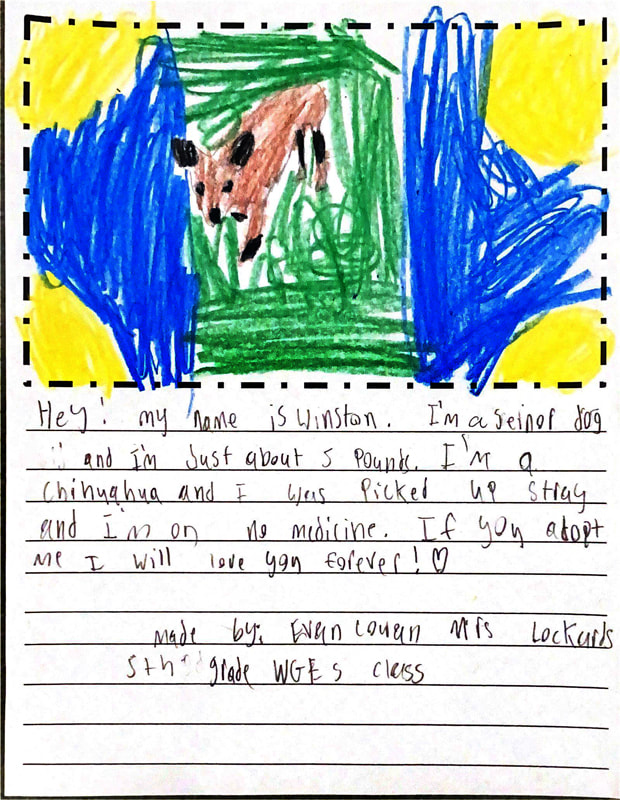 Hey! my name is Winston. I'm a seinor dog
and I'm Just about 5 Pounds. I'm a
Chihuahua and I was Picked up stray
and I'm on no medicine. If you adopt
me I will love you forever! ♡
made by: Evan Cowan Mrs Lockards
5th grade WGES class